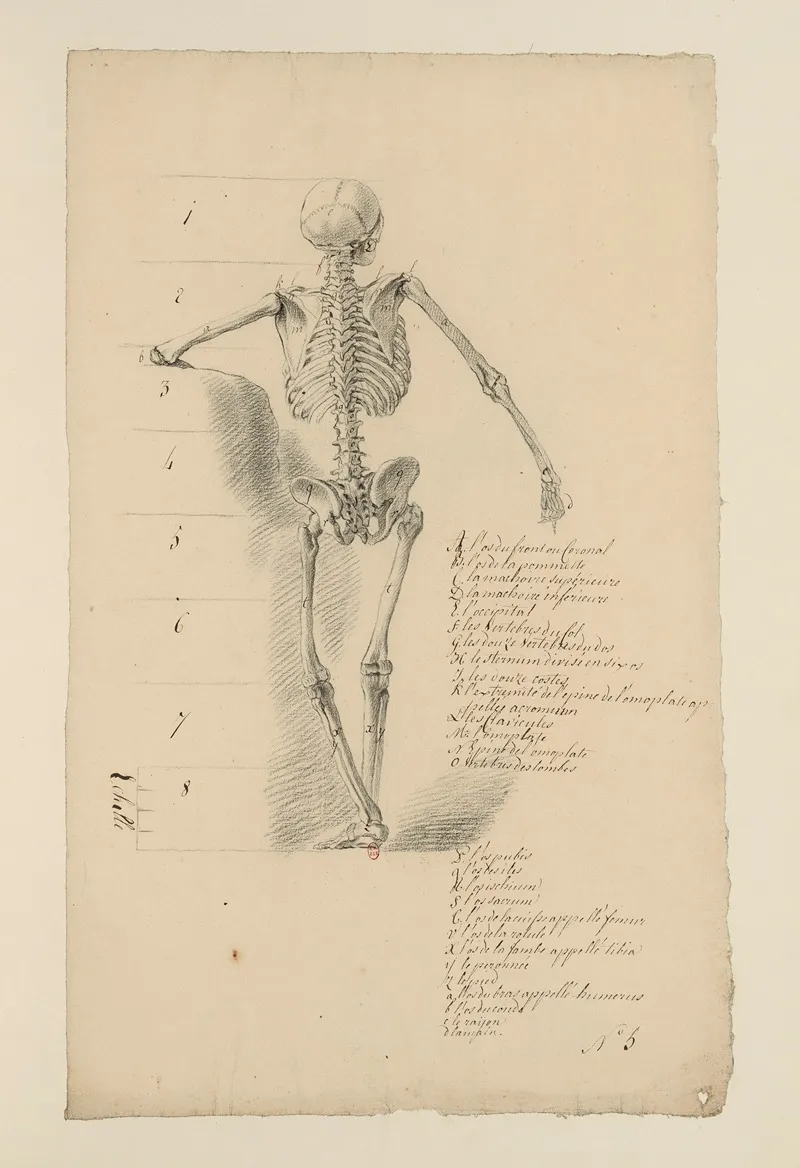 1
2
3
4
5
6
7
8
Echelle
A. l'os du front ou Coronal
B. l'os de la pommette
C la machoire supérieure
D la machoire inférieure
E. l'occipital
F les vertebres du Col
G. les douze vertebres du dos
H le sternum divisé en six os
I. les douze costes
K l'extremité de l'epine de l'omoplate ap-
pellés acromium
L les Clavicules
M l'omoplate
N Epine de l'omoplate
O Vertebres des lombes
P l'os pubis
q l'os des iles
R l'os ischium
S l'os sacrum
t l'os de la cuisse appellé femur
V l'os de la rotule
X l'os de la jambe appellé tibia
y le peronnée
Z le pied
a l'os du bras appellé humerus
b l'os du coude
c le raijon
d la main.
N° 5